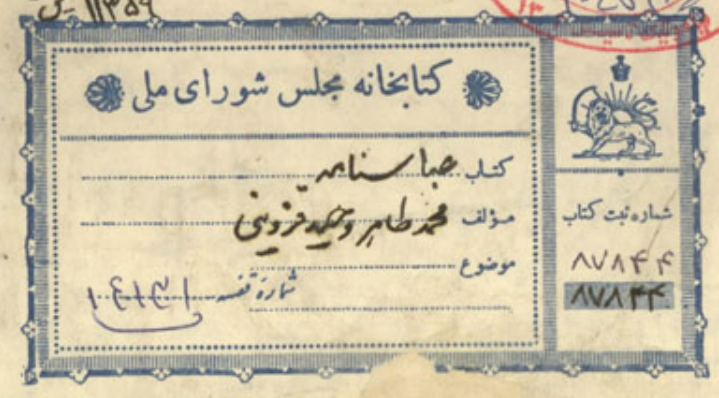 ۱۱۳۵۹
کتابخانه مجلس شورای ملی
کتاب عباسنامه
مؤلف محمد طاهر وحید قزوینی
موضوع
شماره قفسه
شماره ثبت کتاب
۸۷۸۴۴
۸۷۸۴۴